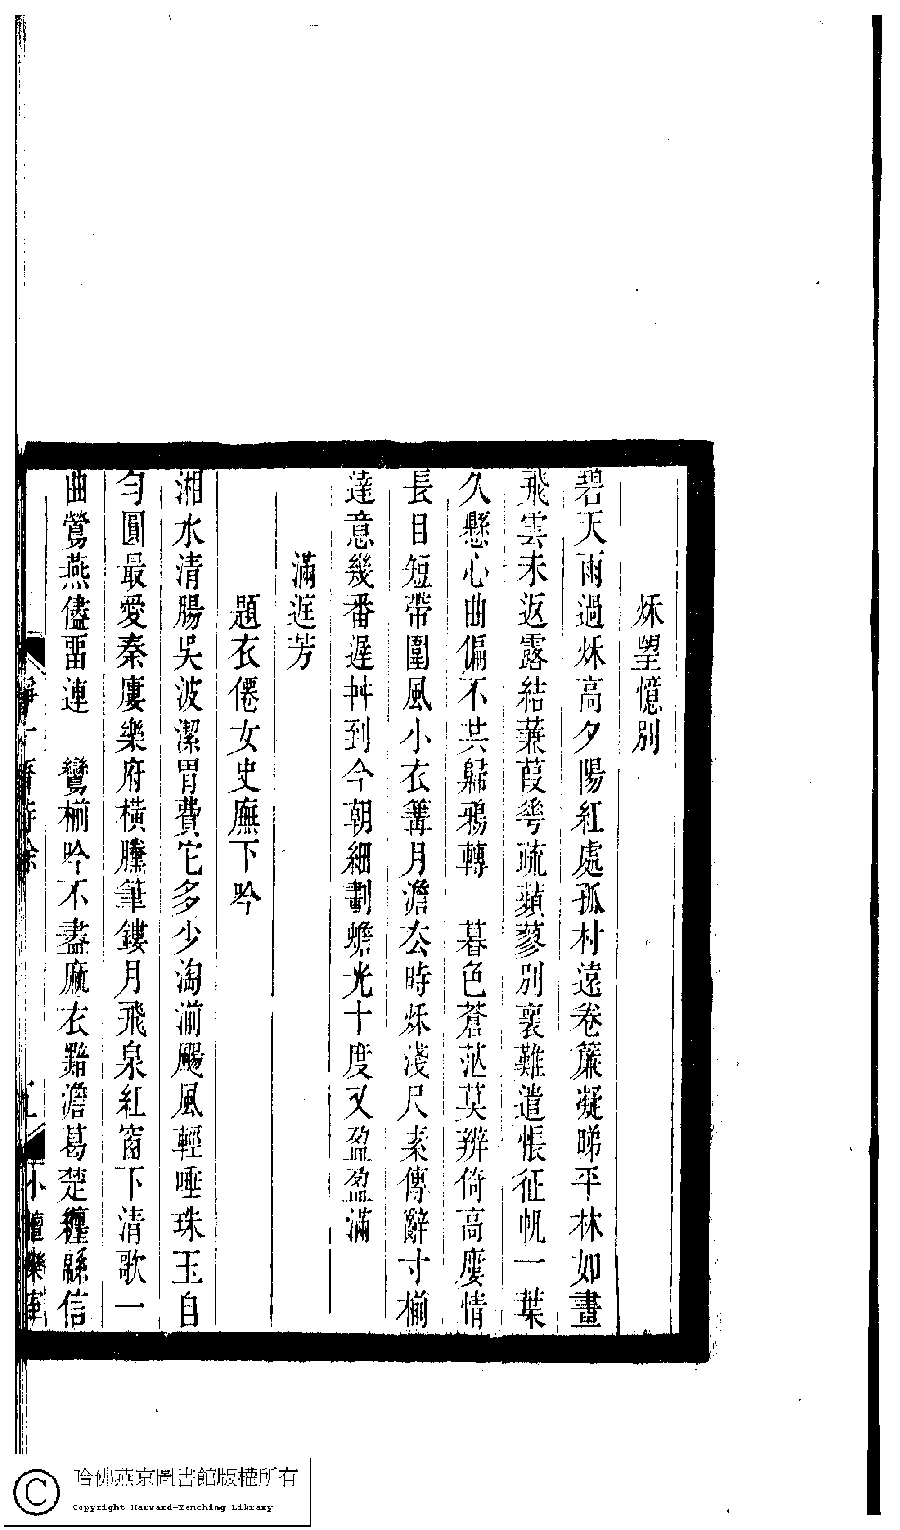 秌朢憶別
碧天雨過秌高夕陽紅處孤村遠卷簾凝睇平林如畫
飛雲未返露結蒹葭雩疏蘋蓼別裏難遣悵征帆一葉
久懸心曲偏不共歸鴉轉　暮色蒼茫莫辨倚高廔情
長目短帶圍風小衣篝月澹厺時秌淺尺素傳辭寸椾
達意幾番遲艸到今朝細劃蟾光十度又盈盈滿
滿庭芳
題衣僊女史廡下吟
湘水清腸吳波潔胃費它多少淘湔颺風輕唾珠玉自
勻圓最愛秦廔樂府橫騰筆鏤月飛泉紅窗下清歌一
曲鶯燕儘畱連　鸞椾吟不盡麻衣黯澹葛楚纏緜信
哈佛燕京圖書館版權所有
Copyright Harvard-Yenching Library